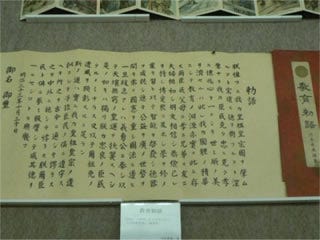 教育勅語
勅語
朕惟フニ我カ皇祖皇宗國ヲ肇
ムルコト宏遠ニ德ヲ樹ツルコト深
厚ナリ我カ臣民克ク忠ニ克ク孝ニ
億兆心ヲ一ニシテ世世厥ノ美ヲ
濟セルハ此レ我カ國體ノ精華
ニシテ教育ノ淵源亦實ニ此ニ存ス
爾臣民父母ニ孝ニ兄弟ニ友ニ
夫婦相和シ朋友相信シ恭儉己レ
ヲ持シ博愛衆ニ及ホシ學ヲ修メ
業ヲ習ヒ以テ智能ヲ啓發シ德器
ヲ成就シ進テ公益ヲ廣メ世務ヲ
開キ常ニ國憲ヲ重シ國法ニ遵ヒ
一旦緩急アレハ義勇公ニ奉シ以
テ天壤無窮ノ皇運ヲ扶翼スヘシ
是ノ如キハ獨リ朕カ忠良ノ臣民
タルノミナラス又以テ爾祖先ノ
遺風ヲ顯彰スルニ足ラン
斯ノ道ハ實ニ我カ皇祖皇宗ノ遺
訓ニシテ子孫臣民ノ俱ニ遵守ス
ヘキ所之ヲ古今ニ通シテ謬ラス
之ヲ中外ニ施シテ悖ラス朕爾臣
民ト俱ニ拳々服膺シテ咸其德
ヲ一ニセンコトヲ庶幾フ
明治二十三年十月三十日
御名 御璽
教育勅語